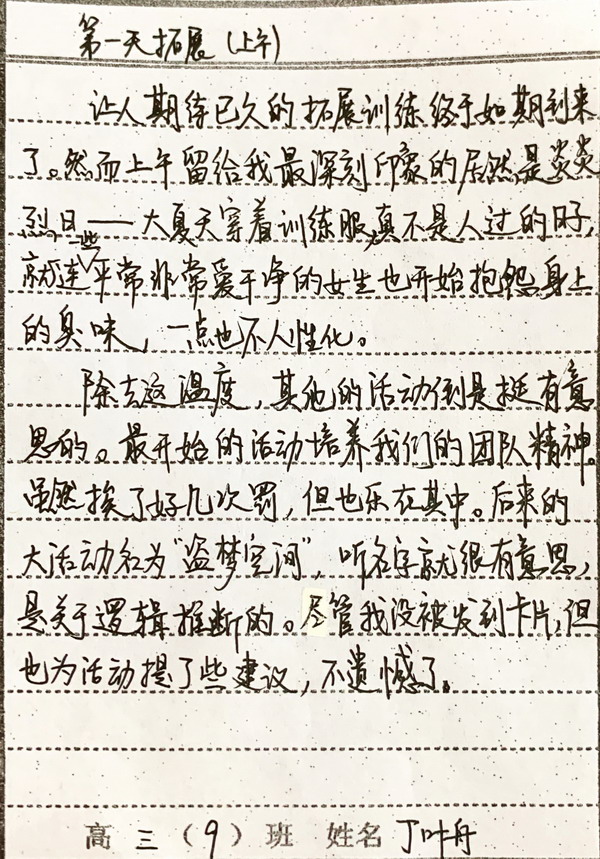 第一天拓展(上午)
让人期待已久的拓展训练终于如期到来
了。然而上午留给我最深刻印象的居然是炎炎
烈日——大夏天穿着训练服,真不是人过的日子,
就连一些平常非常爱干净的女生也开始抱怨身上
的臭味,一点也不人性化。
除去这温度,其他的活动倒是挺有意
思的。最开始的活动培养我们的团队精神。
虽然挨了好几次罚,但也乐在其中。后来的
大活动名为“盗梦空间”,听名字就很有意思,
是关于逻辑推断的。尽管我没被发到卡片,但
也为活动提了些建议,不遗憾了。
高三(9)班 姓名 丁叶舟